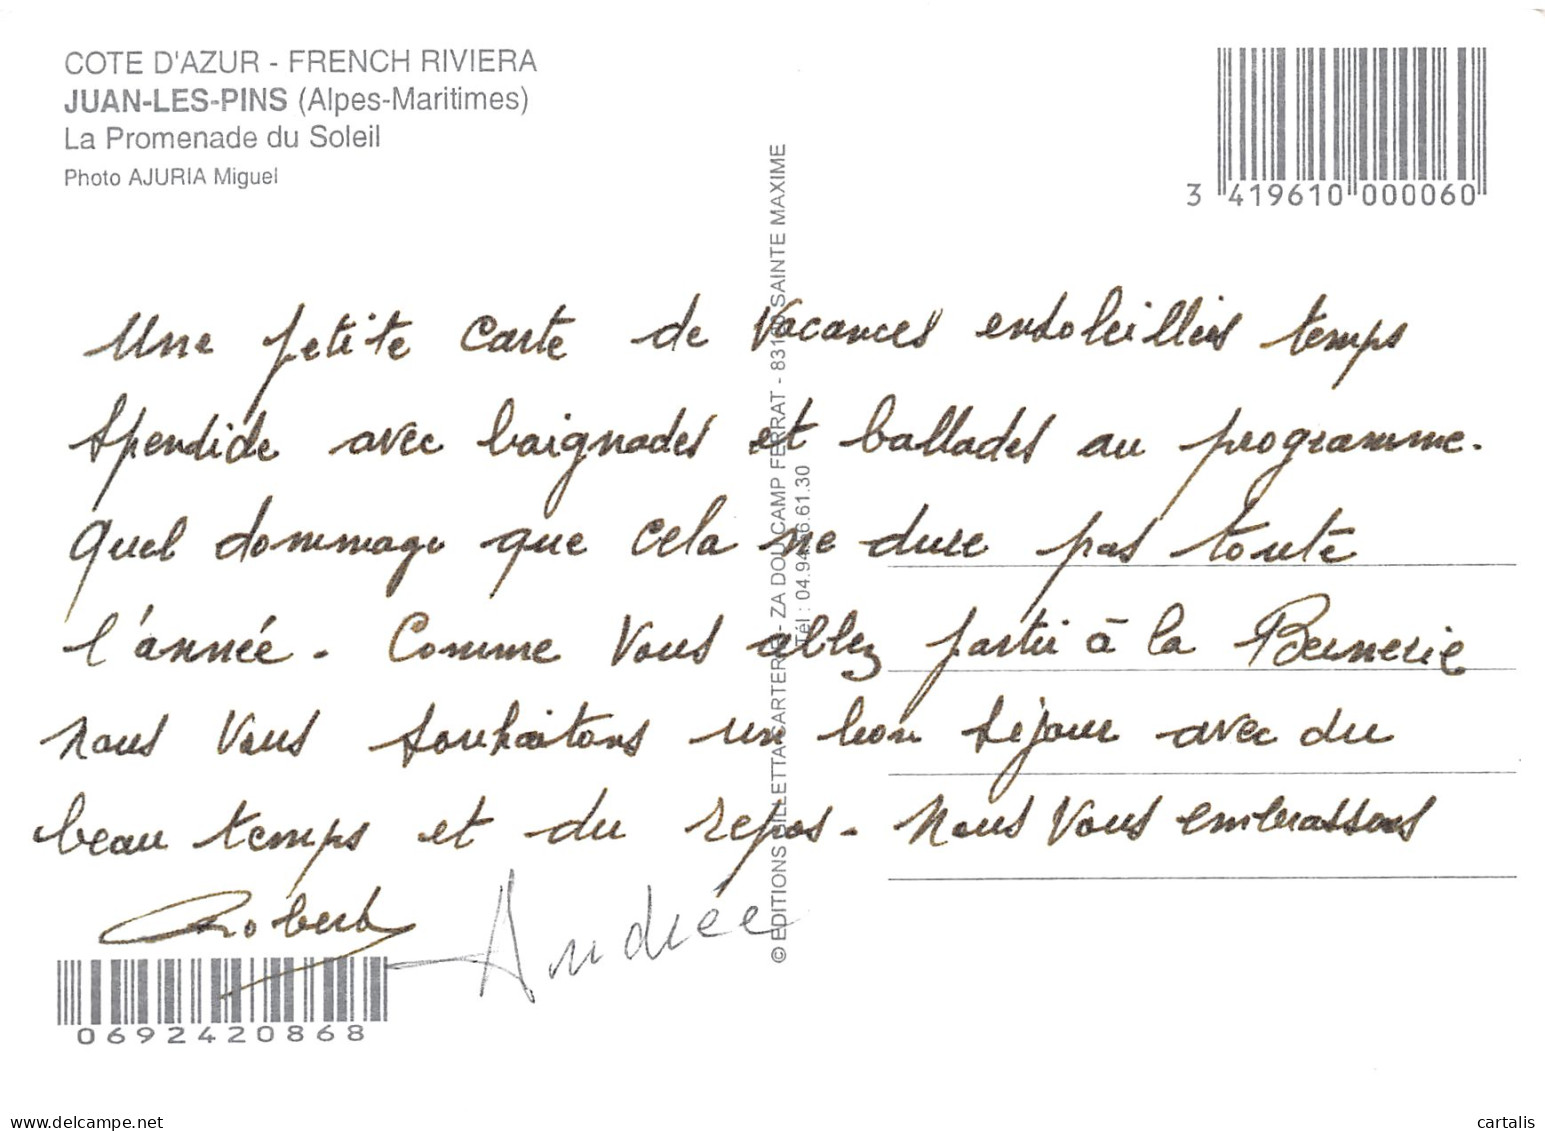 COTE D'AZUR - FRENCH RIVIERA
JUAN-LES-PINS (Alpes-Maritimes)
La Promenade du Soleil
Photo AJURIA Miguel
3 419610 000060
Une petite carte de Vacances ensoleillées temps
spendide avec baignades et ballades au programme.
Quel dommage que cela ne dure pas toute
l'année. Comme Vous allez partir à la Bernerie
nous Vous souhaitons un bon séjour avec du
beau temps et du repos. Nous Vous embrassons
Robert Andrée
0692420868
© EDITIONS GILLETTA CARTERIE - ZA DOU CAMP FERRAT - 83120 SAINTE MAXIME
Tél : 04.94.96.61.30
www.delcampe.net
cartalis